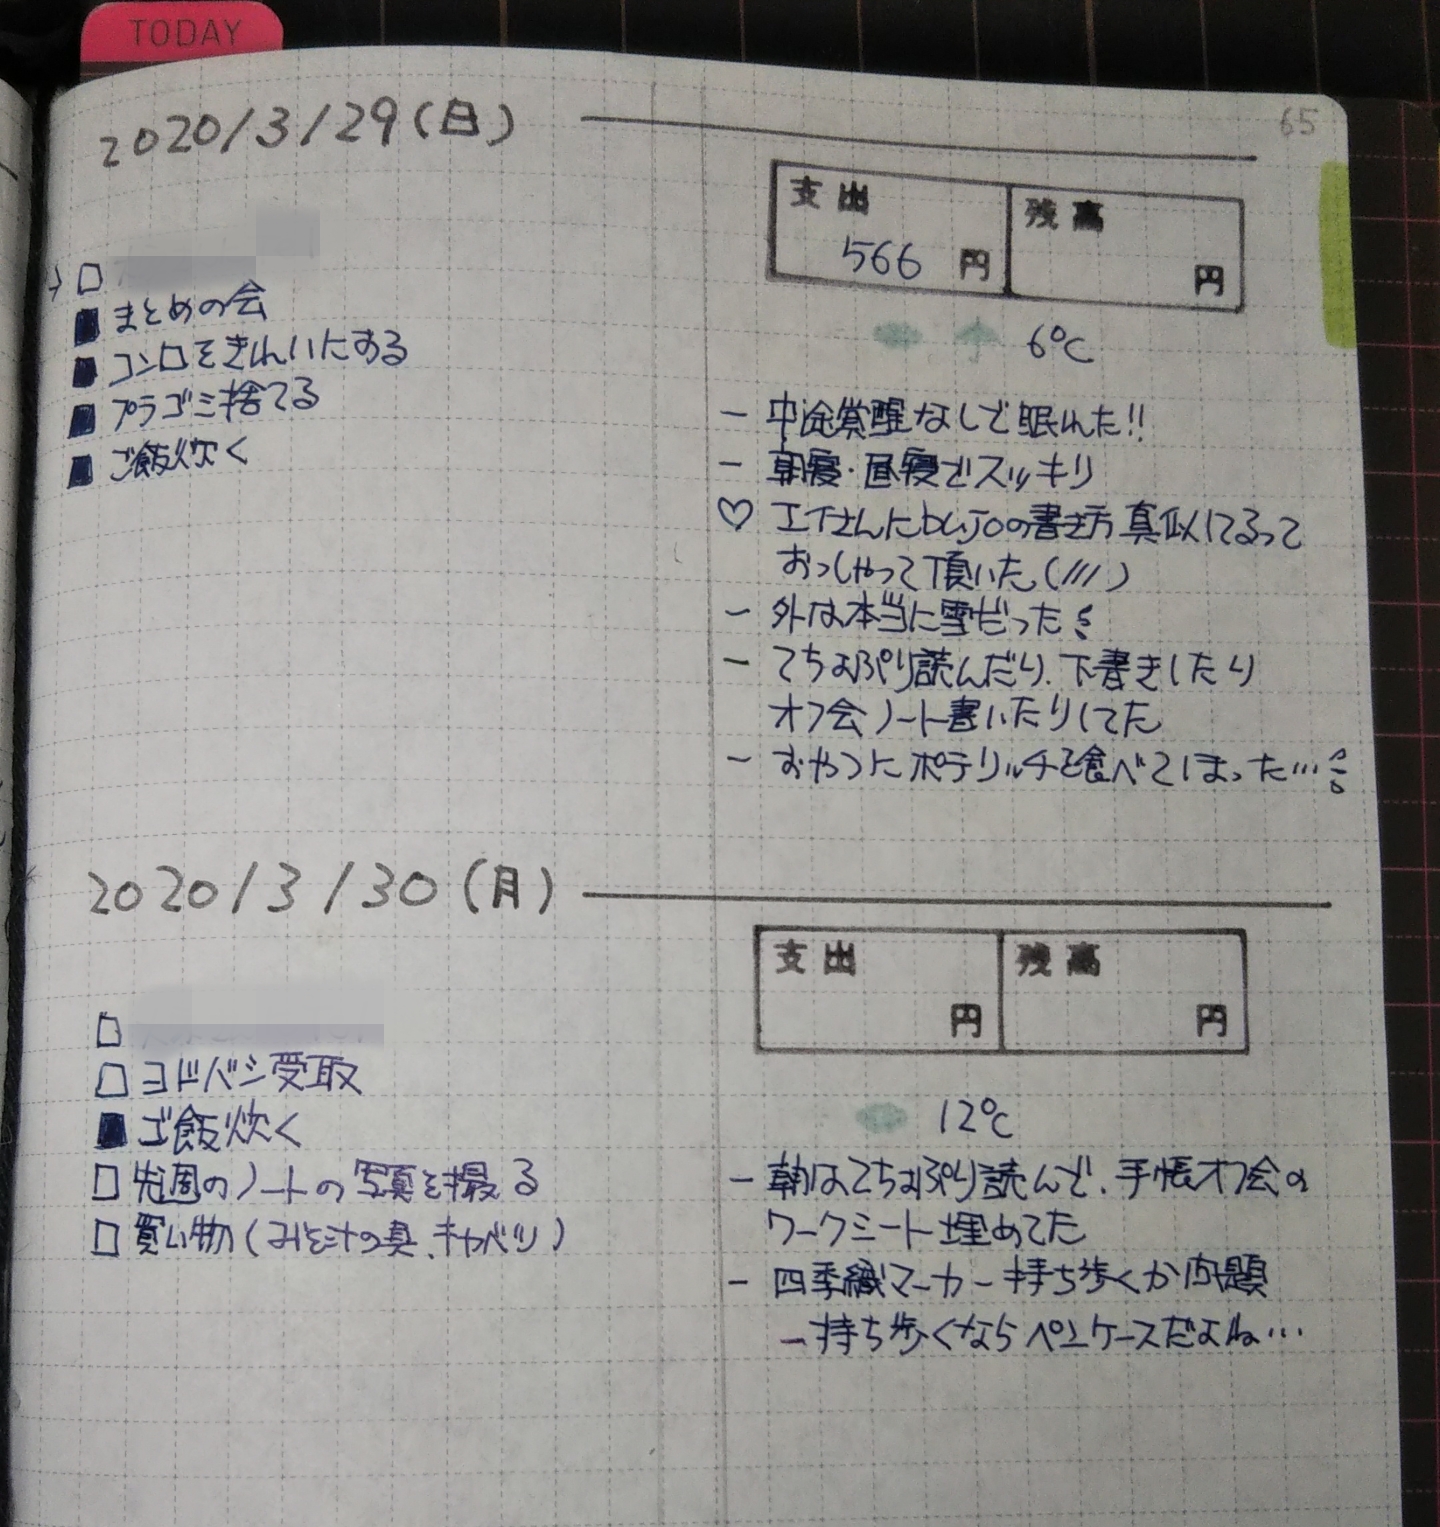 TODAY
65
2020/3/29(日)
支出 残高
566 円 円
6℃
→□
■まとめの会
■コンロをきれいにする
■プラゴミ捨てる
■ご飯炊く
- 中途覚醒なしで眠れた!!
- 朝寝・昼寝でスッキリ
♡ エイさんにbuJoの書き方真似してるって
おっしゃって頂いた(///)
- 外は本当に雪だった
- てちょぷり読んだり、下書きしたり
オフ会ノート書いたりしてた
- おやつにポテリッチを食べてしまった…
2020/3/30(月)
支出 残高
円 円
12℃
□
□ヨドバシ受取
■ご飯炊く
□先週のノートの写真を撮る
□買い物(みそ汁の具、キャベツ)
- 朝はてちょぷり読んで、手帳オフ会の
ワークシート埋めてた
- 四季織マーカー持ち歩くか問題
- 持ち歩くならペンケースだよね…